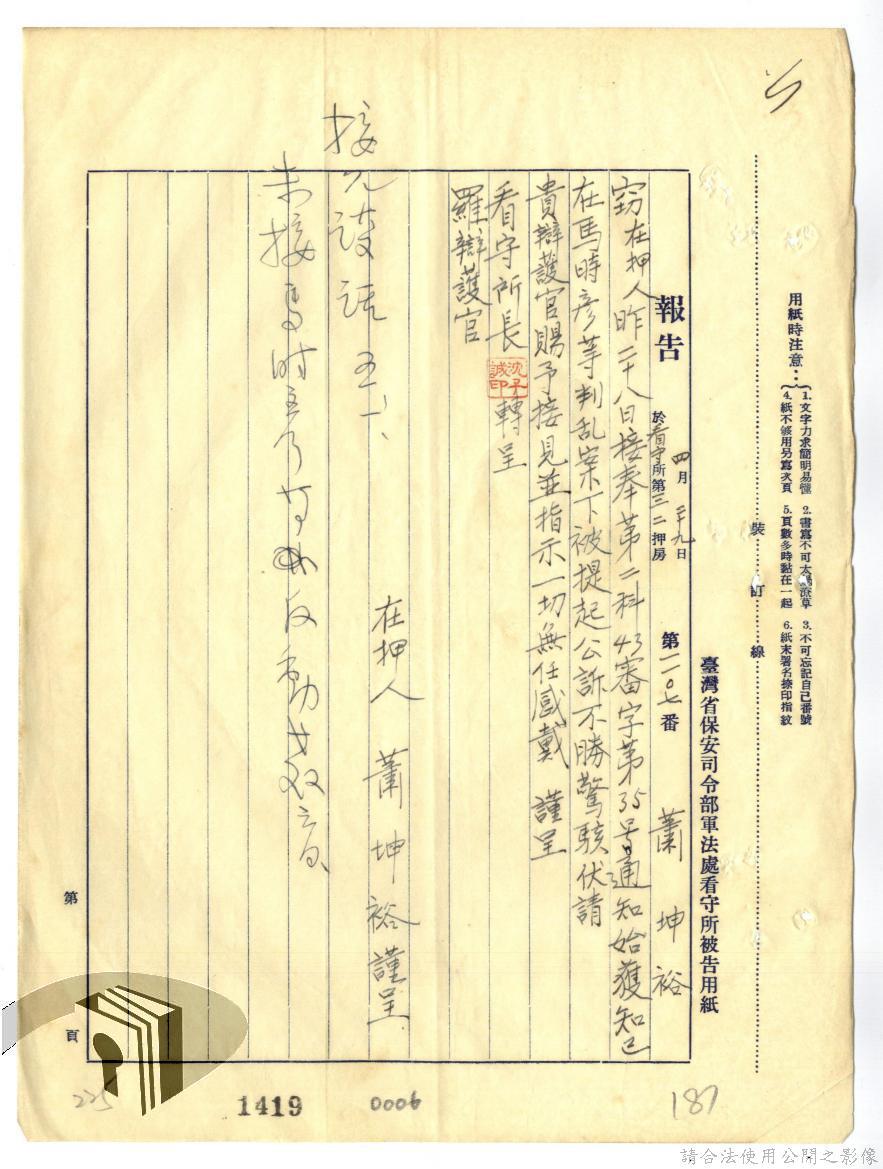 用紙時注意：
1. 文字力求簡明易懂　2. 書寫不可太潦草　3. 不可忘記自己番號
4. 紙不够用另寫次頁　5. 頁數多時黏在一起　6. 紙末署名捺印指紋
裝訂線
臺灣省保安司令部軍法處看守所被告用紙
報告　四月二十九日　於看守所第三二押房　第一二〇七番　蕭坤裕
竊在押人昨二十八日接奉第二科43審字第35号通知始獲知已
在馬時彥等判乱案下被提起公訴不勝驚駭伏請
貴辯護官賜予接見並指示一切無任感戴　謹呈
看守所長　轉呈
沈子誠印
羅辯護官
在押人　蕭坤裕謹呈
接見談話
未接馬時彥
第　頁
225
1419
0006
187
請合法使用公開之影像